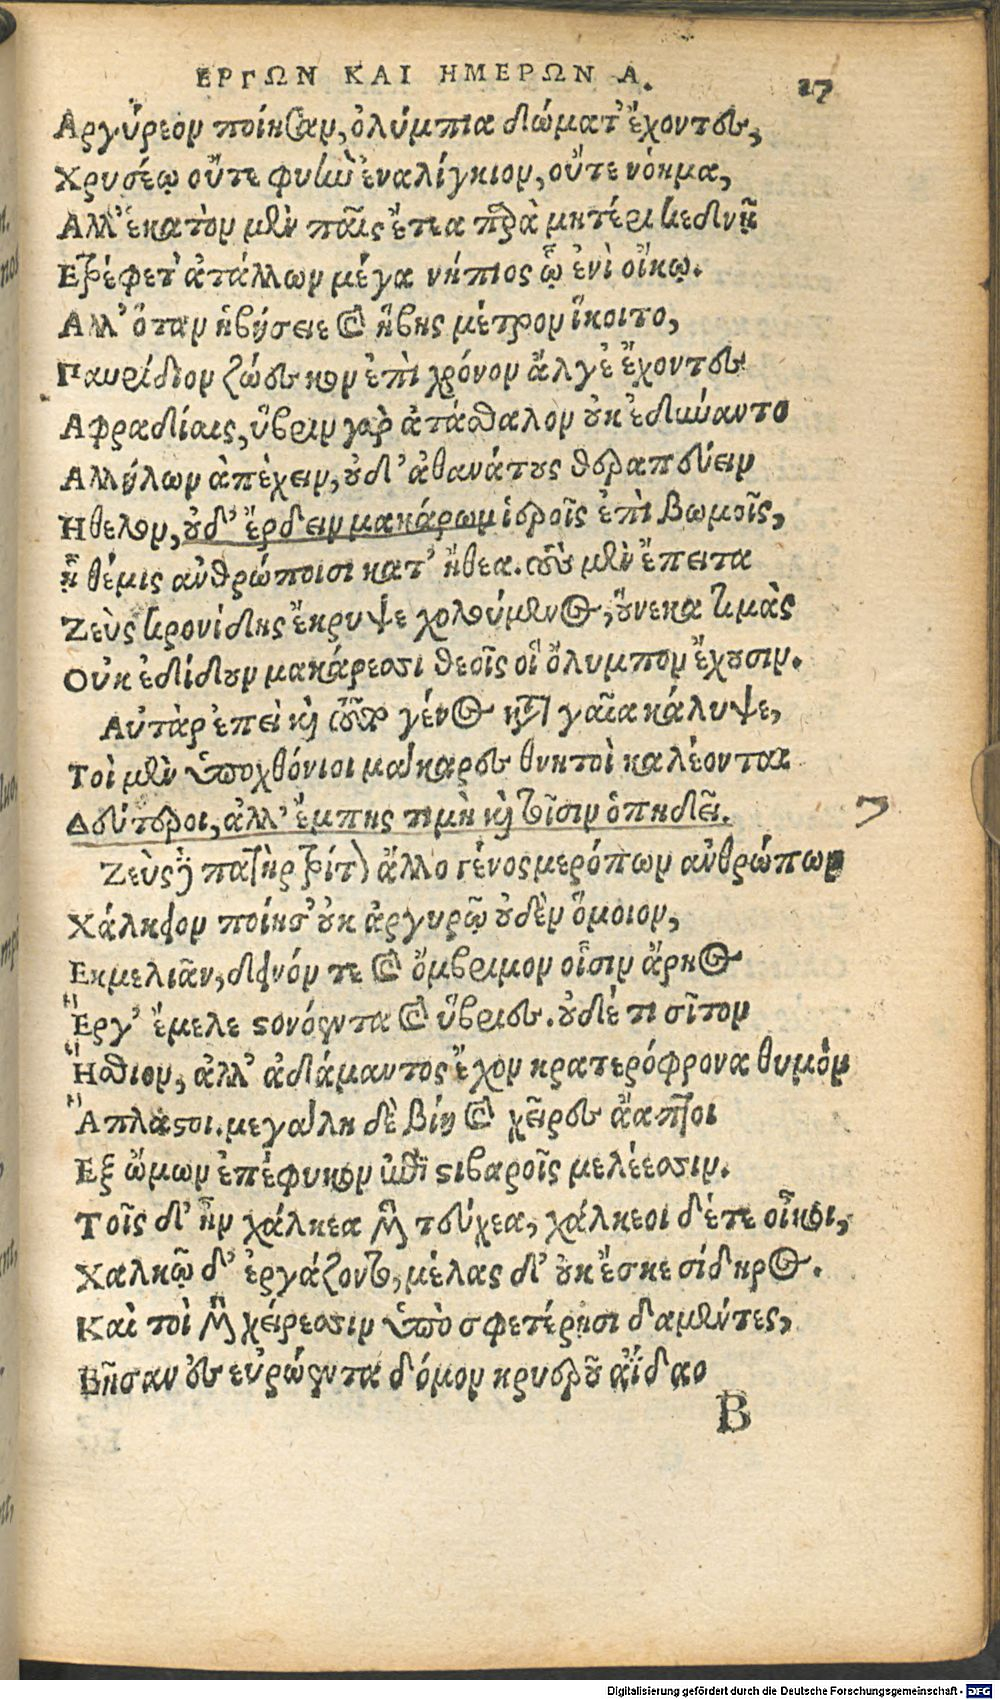 ΕΡΓΩΝ ΚΑΙ ΗΜΕΡΩΝ Α. 17
Αργύρεον ποίησαν, ὀλύμπια δώματ' ἔχοντες,
Χρυσέῳ οὔτε φυὴν ἐναλίγκιον, οὔτε νόημα,
Αλλ' ἑκατὸν μὲν παῖς ἔτεα παρὰ μητέρι κεδνῇ
Ετρέφετ' ἀτάλλων μέγα νήπιος ᾧ ἐνὶ οἴκῳ.
Αλλ' ὅταν ἡβήσειε καὶ ἥβης μέτρον ἵκοιτο,
Παυρίδιον ζώεσκον ἐπὶ χρόνον ἄλγε' ἔχοντες
Αφραδίαις, ὕβριν γὰρ ἀτάσθαλον οὐκ ἐδύναντο
Αλλήλων ἀπέχειν, οὐδ' ἀθανάτους θεραπεύειν
Ηθελον, οὐδ' ἔρδειν μακάρων ἱεροῖς ἐπὶ βωμοῖς,
ᾗ θέμις ἀνθρώποισι κατ' ἤθεα. τοὺς μὲν ἔπειτα
Ζεὺς κρονίδης ἔκρυψε χολούμενος, οὕνεκα τιμὰς
Οὐκ ἐδίδουν μακάρεσσι θεοῖς οἳ ὄλυμπον ἔχουσιν.
Αὐτὰρ ἐπεὶ καὶ τοῦτο γένος κατὰ γαῖα κάλυψε,
Τοὶ μὲν ὑποχθόνιοι μάκαρες θνητοὶ καλέονται
Δεύτεροι, ἀλλ' ἔμπης τιμὴ καὶ τοῖσιν ὀπηδεῖ.
Ζεὺς δὲ πατὴρ τρίτον ἄλλο γένος μερόπων ἀνθρώπων
Χάλκειον ποίησ' οὐκ ἀργυρῷ οὐδὲν ὅμοιον,
Εκ μελιᾶν, δεινόν τε καὶ ὄμβριμον οἷσιν ἄρηος
Ἔργ' ἔμελε στονόεντα καὶ ὕβριες. οὐδέ τι σῖτον
Ἤσθιον, ἀλλ' ἀδάμαντος ἔχον κρατερόφρονα θυμὸν
Ἄπλαστοι. μεγάλη δὲ βίη καὶ χεῖρες ἄαπτοι
Εξ ὤμων ἐπέφυκον ἐπὶ στιβαροῖς μελέεσσιν.
Τοῖς δ' ἦν χάλκεα μὲν τεύχεα, χάλκεοι δέ τε οἶκοι,
Χαλκῷ δ' ἐργάζοντο, μέλας δ' οὐκ ἔσκε σίδηρος.
Καὶ τοὶ μὲν χείρεσσιν ὑπὸ σφετέρῃσι δαμέντες,
Βῆσαν ἐς εὐρώεντα δόμον κρυεροῦ ἀΐδαο
Β
Digitalisierung gefördert durch die Deutsche Forschungsgemeinschaft - DFG